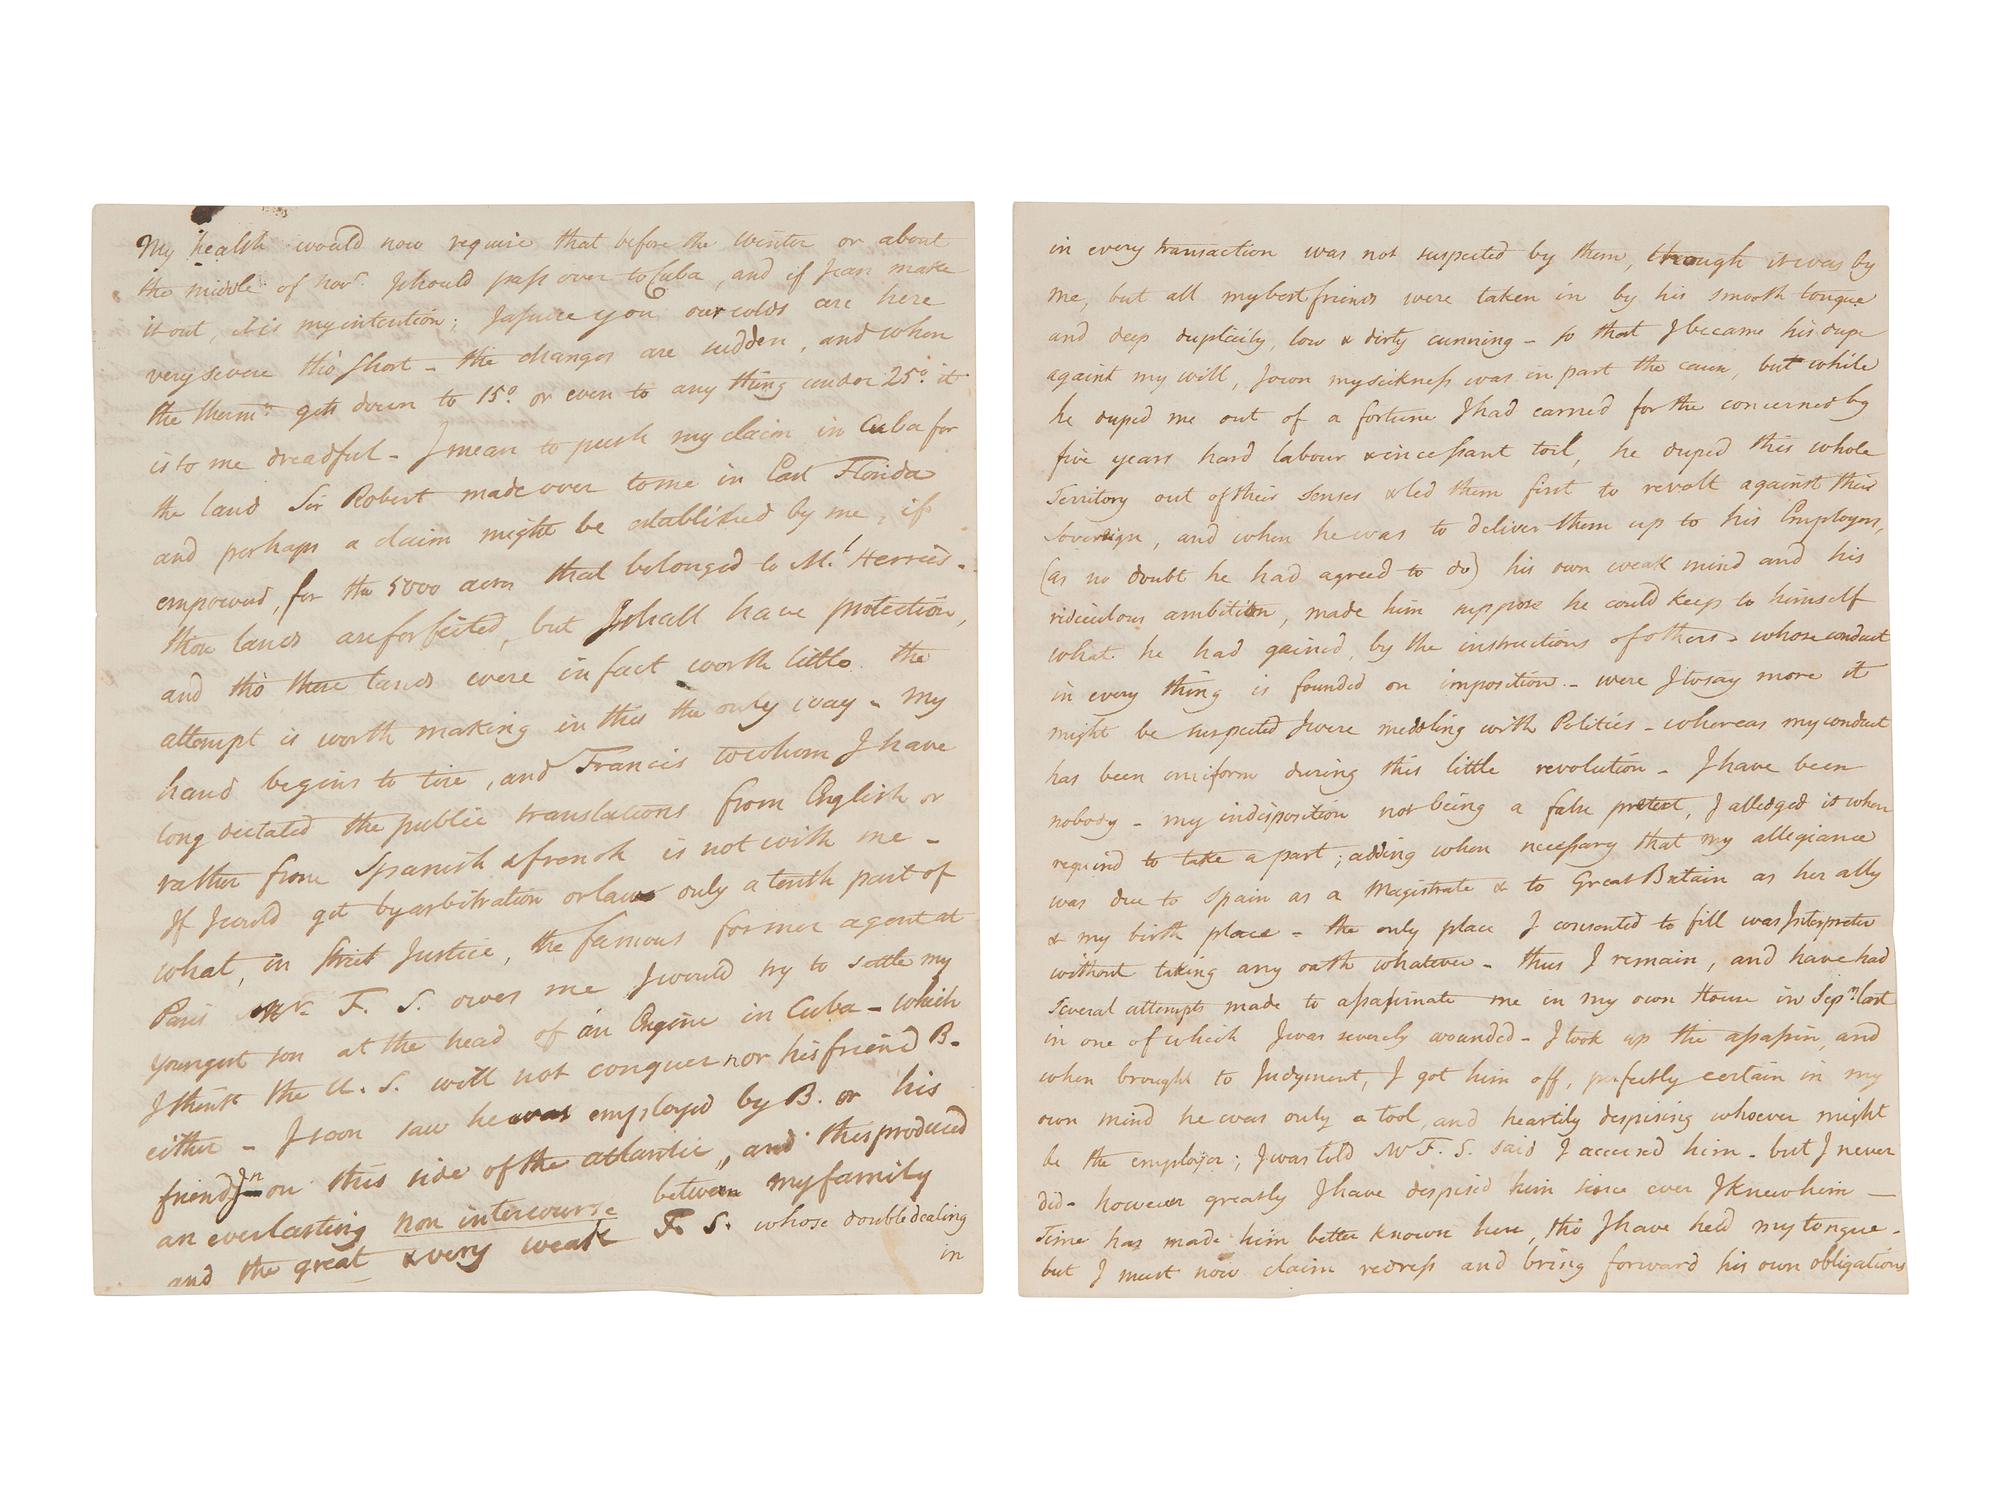 My health would now require that before the Winter or about
the middle of Novr. I should pass over to Cuba, and if I can make
it out, it is my intention; I assure you our colds are here
very severe tho' short – the changes are sudden, and when
the thermr. gets down to 15° or even to any thing under 25° it
is to me dreadful – I mean to push my claim in Cuba for
the land Sir Robert made over to me in East Florida
and perhaps a claim might be established by me, if
empowered, for the 5000 acres that belonged to Mr. Herries –
those lands are forfeited, but I shall have protection,
and tho' these lands were in fact worth little the
attempt is worth making in this the only way – My
hand begins to tire, and Francis to whom I have
long dictated the public translations from English or
rather from Spanish & french is not with me –
If I could get by arbitration or law only a tenth part of
what, in strict Justice, the famous former agent at
Paris Mr. F. S. owes me I would try to settle my
youngest son at the head of an Engine in Cuba – which
I think the U. S. will not conquer nor his friend B.
either – I soon saw he was employed by B. or his
friend Jn on this side of the atlantic, and this produced
an everlasting non intercourse between my family
and the great & very weak F. S. whose double dealing
in
in every transaction was not suspected by them, though it was by
me, but all my best friends were taken in by his smooth tongue
and deep duplicity, low & dirty cunning – so that I became his dupe
against my will, I own my sickness was in part the cause, but while
he duped me out of a fortune I had earned for the concerned by
five years hard labour & incessant toil, he duped this whole
Territory out of their senses & led them first to revolt against their
Sovereign, and when he was to deliver them up to his Employers,
(as no doubt he had agreed to do) his own weak mind and his
ridiculous ambition, made him suppose he could keep to himself
what he had gained, by the instructions of others – whose conduct
in every thing is founded on imposition – were I to say more it
might be suspected I were meddling with Politics – whereas my conduct
has been uniform during this little revolution – I have been
nobody – my indisposition not being a false pretext, I alledged it when
required to take a part; adding when necessary that my allegiance
was due to Spain as a Magistrate & to Great Britain as her ally
& my birth place – the only place I consented to fill was Interpreter
without taking any oath whatever – thus I remain, and have had
several attempts made to assassinate me in my own House in Sepr. last
in one of which I was severely wounded – I took up the assassin, and
when brought to Judgment, I got him off, perfectly certain in my
own mind he was only a tool, and heartily despising whoever might
be the employer; I was told Mr F. S. said I accused him – but I never
did – however greatly I have despised him since ever I knew him –
Time has made him better known here, tho I have held my tongue –
but I must now claim redress and bring forward his own obligations